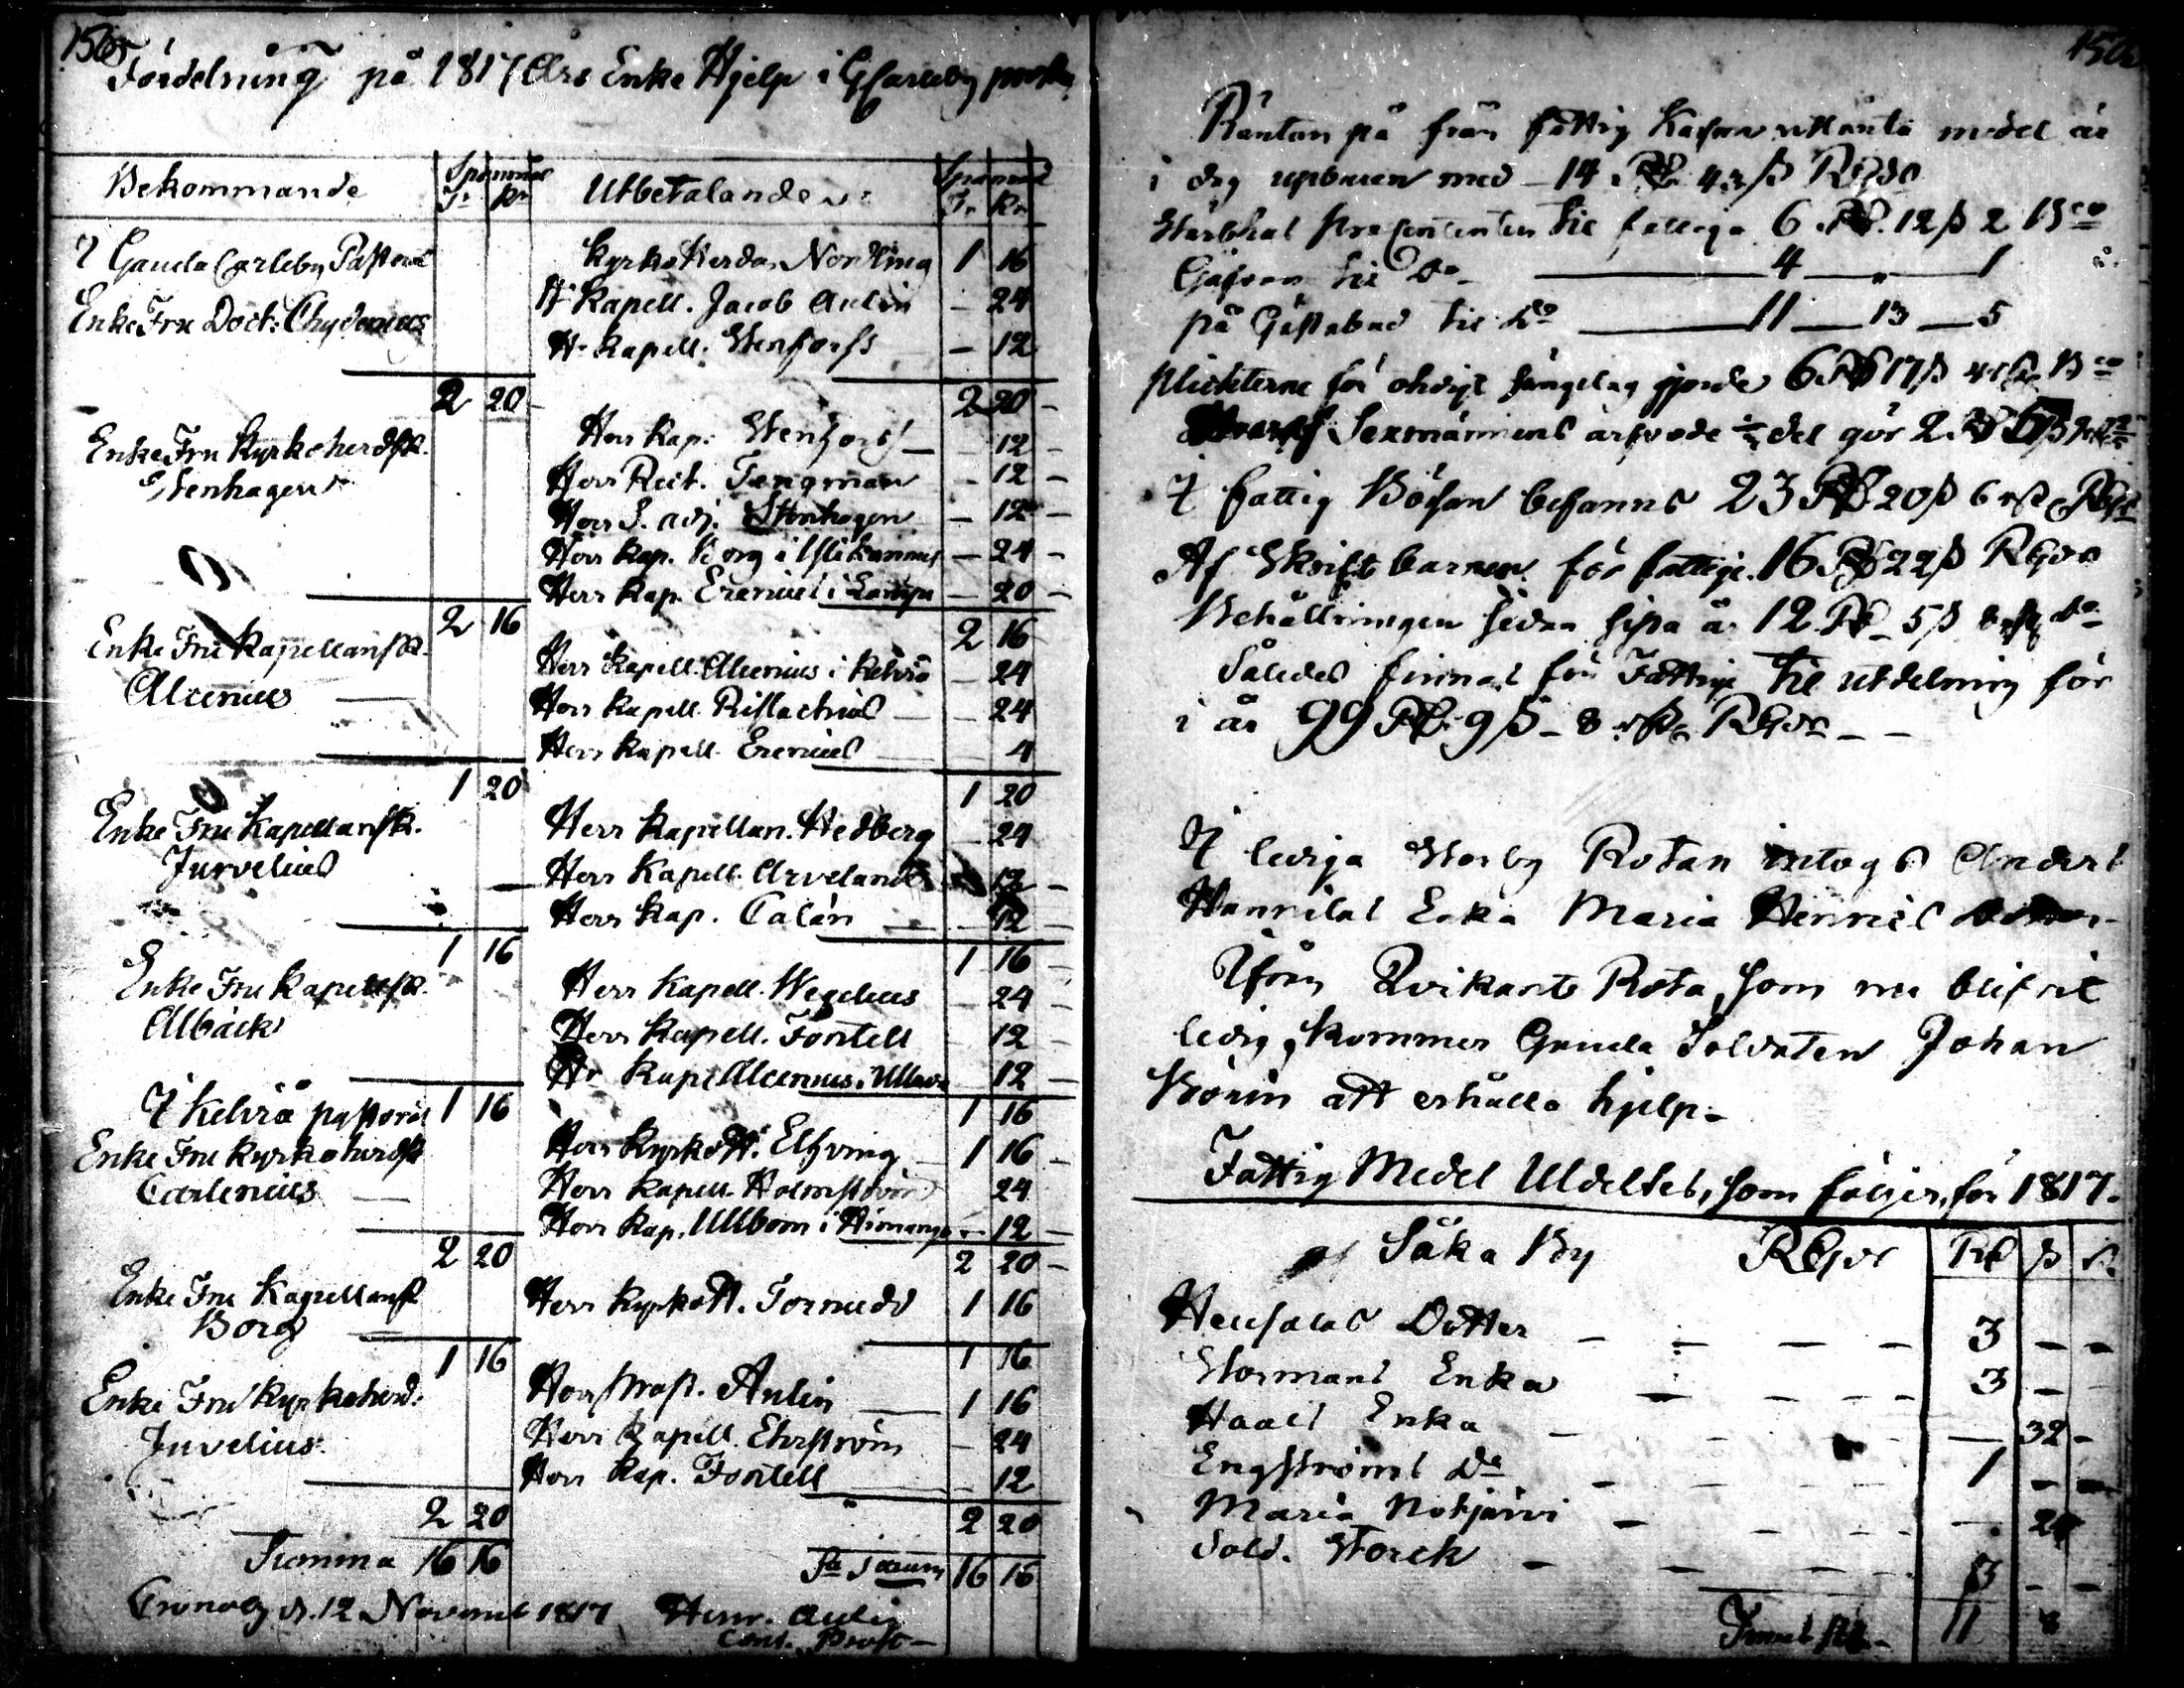 1565
Fördelning på 1817 Års Enke Hjelp i GCarleby
Bekommande Spanmål Utbetalande Spanmål
Tr Kr Tr Kr
I Gamla Carleby Pastorat
Enke Fru Doct: Chydenius
Kyrkoherden Nordling 1 16
Hr Kapell. Jacob Aulin - 24
Hr Kapell. Stenforss - 12
2 20 2 20 -
Enke Fru Kyrkoherdsk.
Stenhagen
Herr Kap. Stenforss - 12
Herr Rect. Tengman - 12 -
Herr S. adj. Stenhagen - 12 -
Herr Kap. Borg i - 24 -
Herr Kap. Erenius i - 20 -
2 16 2 16
Enke Fru Kapellansk.
Alcenius
Herr Kapell. Alcenius i Kelviå - 24
Herr Kapell. Rislachius - 24
Herr Kapell. Erenius 4
1 20 1 20
Enke Fru Kapellansk.
Jurvelius
Herr Kapellan. Hedberg - 24
Herr Kapell. Arvelander 12 -
Herr Kap. Calén - 12
1 16 1 16 -
Enke Fru Kapellsk.
Albäck
Herr Kapell. Wegelius - 24 -
Herr Kapell. Fontell 12 -
Hr Kapl Alcenius i Ullava 12 -
1 16 1 16
I Kelviå pastorat
Enke Fru Kyrkoherdsk
Carlenius
Herr KyrkoH. Elfving 1 16 -
Herr Kapell. Holmström 24
Herr Kap. Ullbom i Himango - 12 -
2 20 2 20 -
Enke Fru Kapellansk
Borg
Herr KyrkoH. Tornudd 1 16
1 16 1 16
Enke Fru Kyrkoherd.
Juvelius
Herr Prost. Aulin 1 16
Herr Kapell. Ehrström - 24
Herr Kap. Fontell 12
2 20 2 20
Summa 16 16 16 16
Cronoby d. 12 Novemb 1817 Henr. Aulin
Cont. Prost -
Räntan på från fattig Kassan utlånta medel är
i dag upburen med - 14 Rd 43 ß RGds
Stärbhus Procenten til fattiga 6 Rd. 12 ß 2 Bco
Gåfvor til Do 4 - 1
på Gästabud til Do 11 13 5
Plickterne för ohöfvligt gjorde 6 Rd 17 ß Bco
Sexmännens arfvode del gör 2 Rd
I fattig Bössan befanns 23 Rd 20 ß 6 rst RGds
Af Skriftbarnen för fattige. 16 Rd 22 ß RGds
Behållningen sedan sista år 12 Rd 5 ß 8 rst Do
Således finnas för Fattige til utdelning för
i år 99 Rd. 9 ß - 8 rst RGds - -
I lediga Storby Rotan intogs Anders
Hannilas Enka Maria Henrics
Ifrån Qvikants Rota, som nu blifvit
ledig, kommer Gamla Soldaten Johan
Bonin att erhålla hjelp.
Fattig Medel Utdeltes, som följer, för 1817.
Såka By RGds Rd ß r.
Dotter - - - - 3 - -
Stormans Enka - - - 3 - -
Haals Enka - - - - 32 -
Engströms Do - - - 1 - -
Maria Nokjärvi - - - -
Sold. Storck - - - - 3 - -
11 8